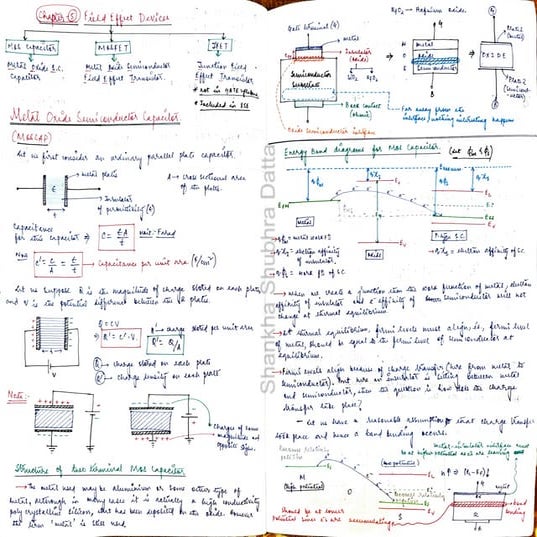 Chapter (5) Field Effect Devices
MOS Capacitor
MOSFET
JFET
Metal Oxide S.C. Capacitor
Metal Oxide Semiconductor Field Effect Transistor.
Junction Field Effect Transistor
* Not in GATE syllabus
* Included in ESE
Metal Oxide Semiconductor Capacitor
(MOSCAP)
Let us first consider an ordinary parallel plate capacitor.
metal plates
A → cross sectional area of the plates.
Insulator of permittivity (ε)
Capacitance for this capacitor ⇒ C = εA/t
Unit - Farad
Now C' = C/A = ε/t → Capacitance per unit area (F/cm²)
Let us suppose Q is the magnitude of charge stored on each plate and V is the potential difference between the plates.
Q = CV
Q' = C'.V.
Q' → charge stored per unit area
Q' = Q/A
Q → charge stored on each plate
Q' → charge density on each plate
Note:
Charges of same magnitudes and opposite signs.
Structure of two terminal MOS Capacitor
→ The metal used may be aluminium or some other type of metal, although in many cases it is actually a high conductivity polycrystalline silicon, that has been deposited on the oxide. However the term 'metal' is still used.
Gate terminal (G)
metal
Insulator (oxide)
Semiconductor substrate
Back contact (ohmic)
Oxide Semiconductor interface
HfO₂ → Hafnium Oxide.
metal
Oxide
Semiconductor
OXIDE
Plate 1 (metal)
Plate 2
Far away from the interface, nothing interesting happens
Energy Band diagrams for MOS Capacitor.
Metal
Oxide
P-type S.C.
→ When we create a junction then the work function of metal, electron affinity of insulator and e⁻ affinity of semiconductor will not change at thermal equilibrium.
→ At thermal equilibrium, fermi levels must align, ie, fermi level of metal should be equal to the fermi level of semiconductor at equilibrium.
→ Fermi levels align because of charge transfer (here from metal to semiconductor). But here an insulator is sitting between metal and semiconductor, then the question is how does the charge transfer take place?
→ Let us have a reasonable assumption that charge transfer took place and hence a band bending occurs.
(High potential)
(Low potential)
band bending
Shankha Shubhra Datta